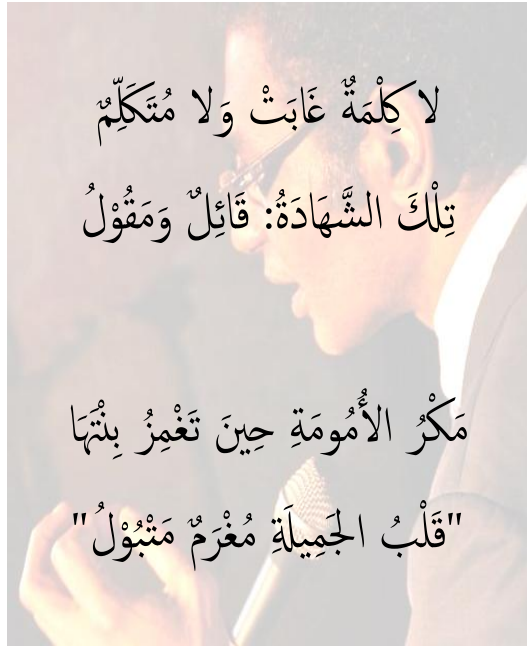 لا كِلْمَةٌ غَابَتْ وَلا مُتَكَلِّمٌ
تِلْكَ الشَّهَادَةُ: قَائِلٌ وَمَقُوْلُ
مَكْرُ الأُمُومَةِ حِينَ تَغْمِزُ بِنْتَهَا
"قَلْبُ الجَمِيلَةِ مُغْرَمٌ مَتْبُوْلُ"